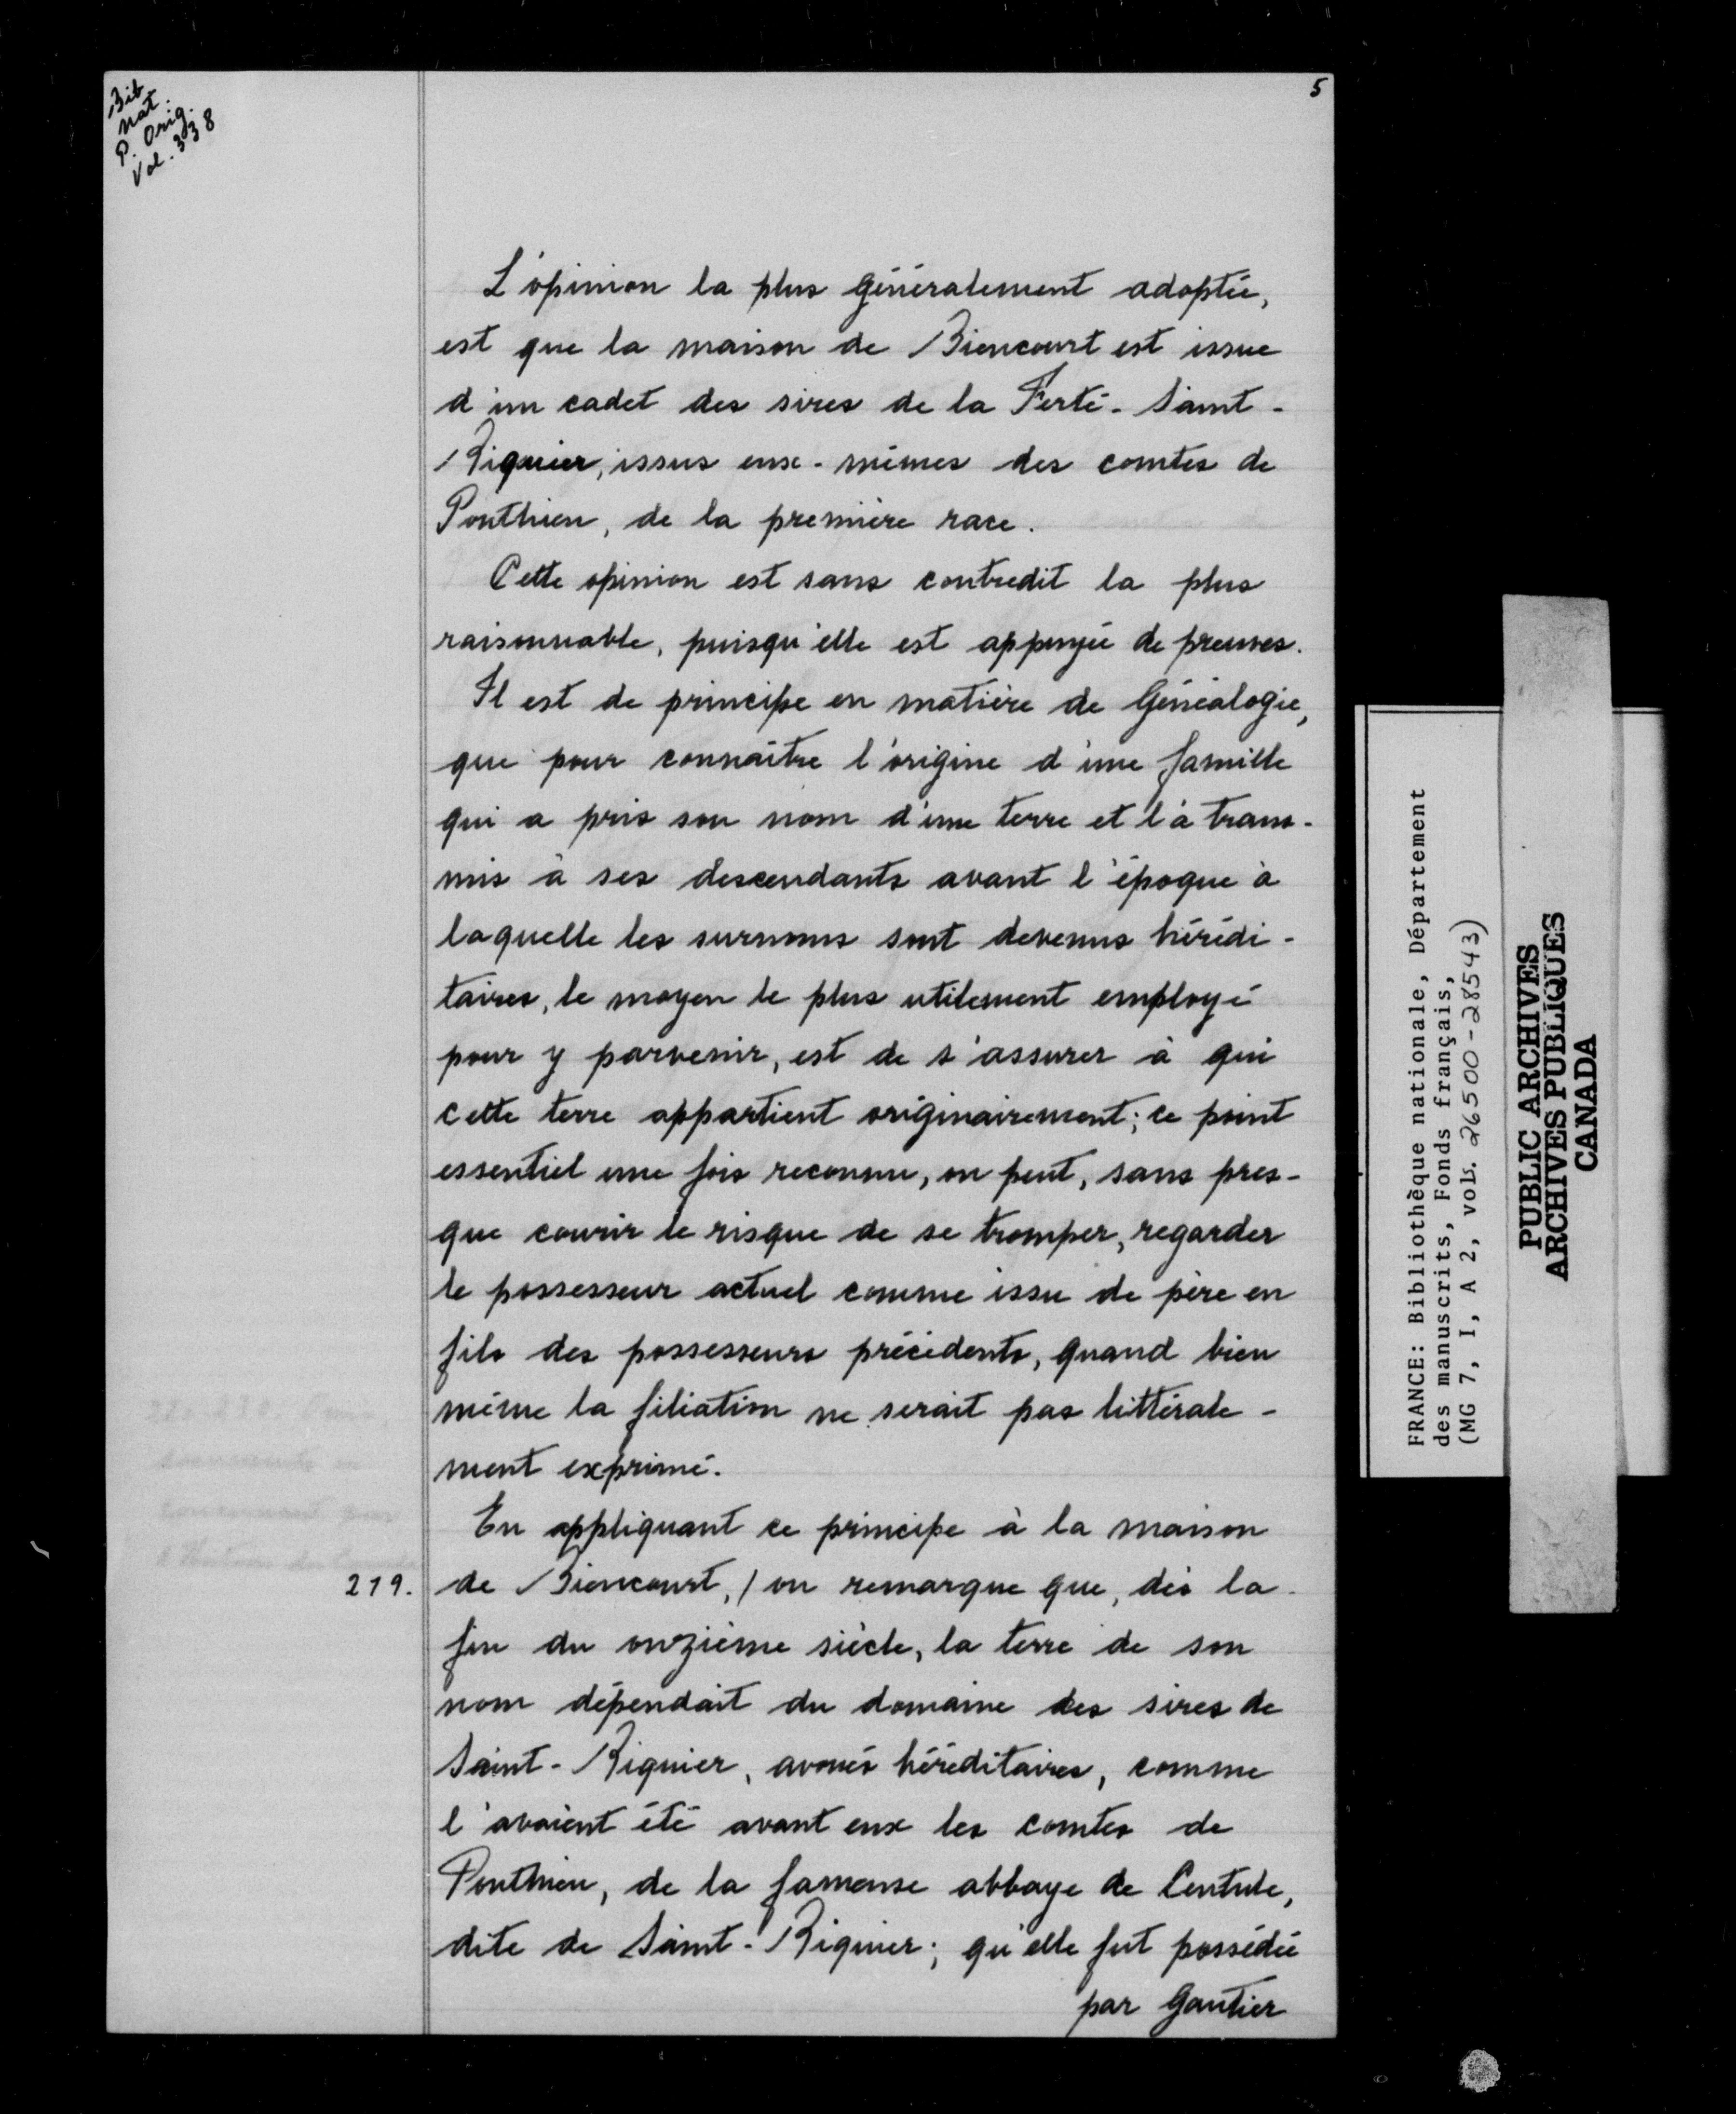 5
Bib
Nat.
P. Orig.
Vol. 338
L'opinion la plus généralement adoptée,
est que la maison de Biencourt est issue
d'un cadet des sires de la Ferté-Saint-
Riquier, issus eux-mêmes des comtes de
Ponthieu, de la première race.
Cette opinion est sans contredit la plus
raisonnable, puisqu'elle est appuyée de preuves.
Il est de principe en matière de Généalogie,
que pour connaître l'origine d'une famille
qui a pris son nom d'une terre et l'a trans-
mis à ses descendants avant l'époque à
laquelle les surnoms sont devenus hérédi-
taires, le moyen le plus utilement employé
pour y parvenir, est de s'assurer à qui
cette terre appartient originairement; ce point
essentiel une fois reconnu, on peut, sans pres-
que courir le risque de se tromper, regarder
le possesseur actuel comme issu de père en
fils des possesseurs précédents, quand bien
même la filiation ne serait pas littérale-
ment exprimé.
En appliquant ce principe à la maison
219. de Biencourt, / on remarque que, dès la
fin du onzième siècle, la terre de son
nom dépendait du domaine des sires de
Saint-Riquier, avoués héréditaires, comme
l'avaient été avant eux les comtes de
Ponthieu, de la fameuse abbaye de Centule,
dite de Saint-Riquier; qu'elle fut possédée
par Gautier
FRANCE: Bibliothèque nationale, Département
des manuscrits, Fonds français,
(MG 7, I, A 2, vols. 26500-28543)
PUBLIC ARCHIVES
ARCHIVES PUBLIQUES
CANADA